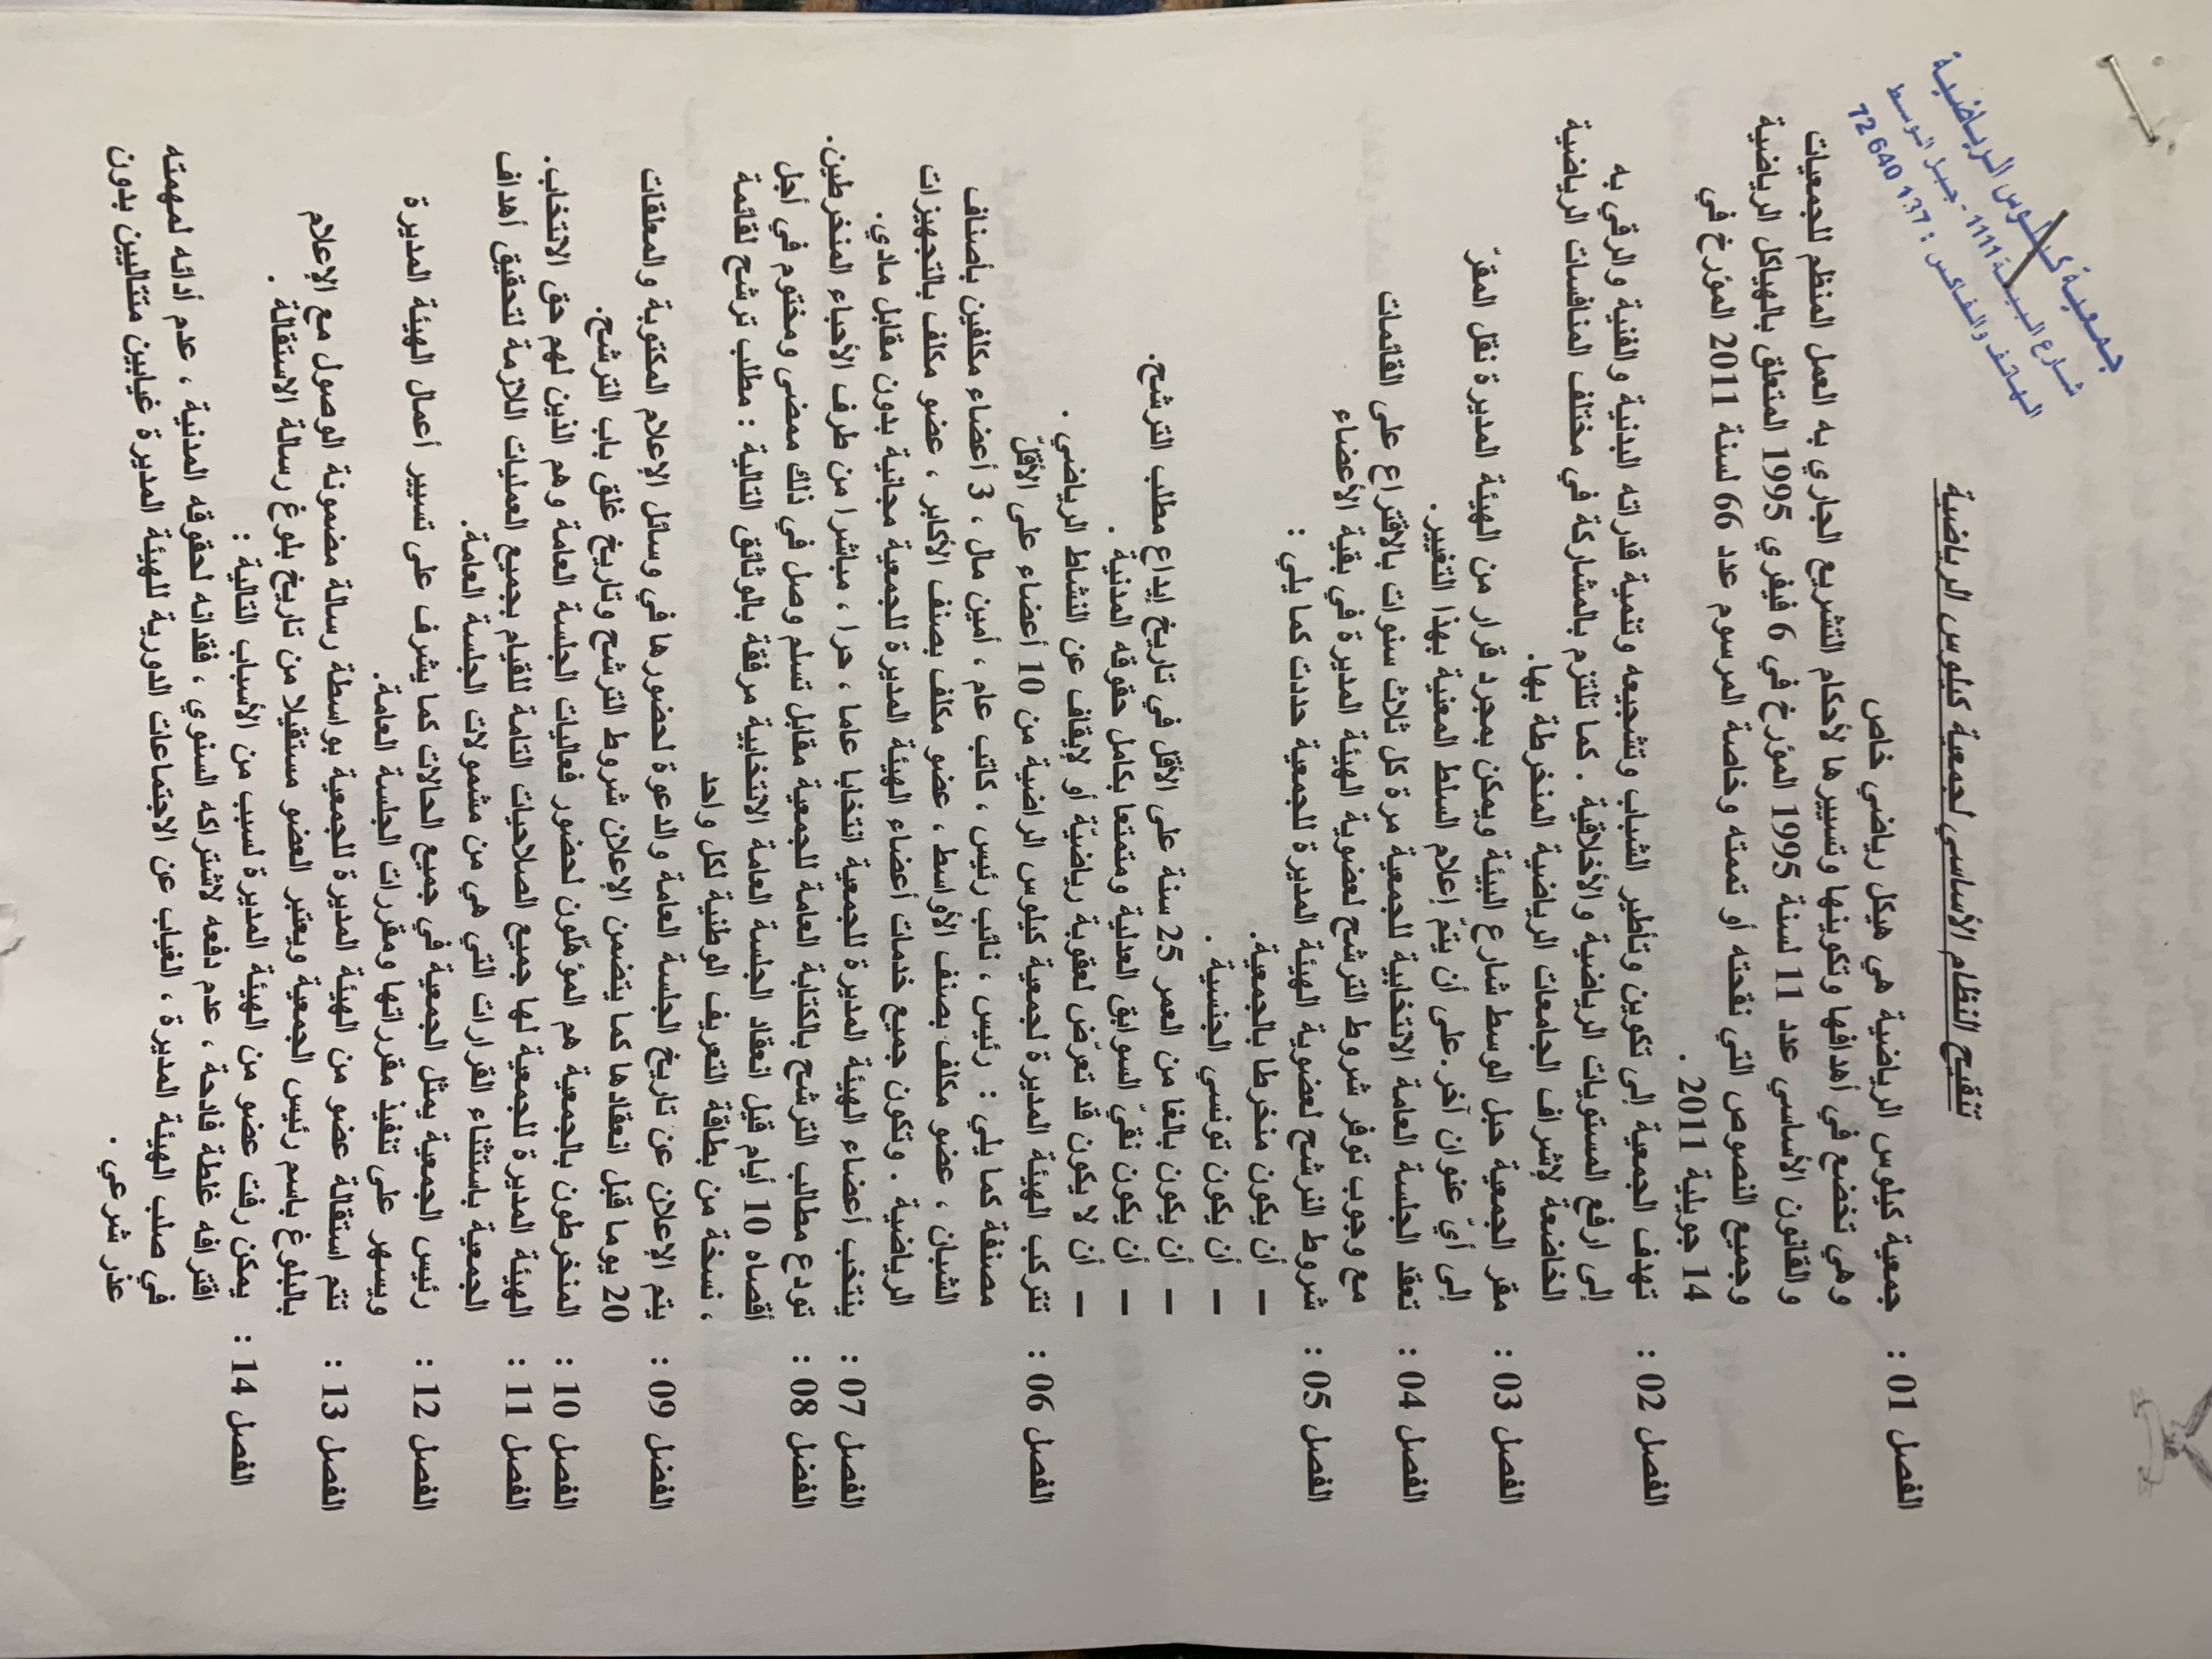 جمعية كيلوس الرياضية
شارع البيئة 1111 - جبل الوسط
الهاتف والفاكس : 72 640 137
تنقيح النظام الأساسي لجمعية كيلوس الرياضية
الفصل 01 : جمعية كيلوس الرياضية هي هيكل رياضي خاص
وهي تخضع في أهدافها وتكوينها وتسييرها لأحكام التشريع الجاري به العمل المنظم للجمعيات
والقانون الأساسي عدد 11 لسنة 1995 المؤرخ في 6 فيفري 1995 المتعلق بالهياكل الرياضية
وجميع النصوص التي نقحته أو تممته وخاصة المرسوم عدد 66 لسنة 2011 المؤرخ في
14 جويلية 2011 .
الفصل 02 : تهدف الجمعية إلى تكوين وتأطير الشباب وتشجيعه وتنمية قدراته البدنية والفنية والرقي به
إلى ارفع المستويات الرياضية والأخلاقية . كما تلتزم بالمشاركة في مختلف المنافسات الرياضية
الخاضعة لإشراف الجامعات الرياضية المنخرطة بها.
الفصل 03 : مقر الجمعية حبل الوسط شارع البيئة ويمكن بمجرد قرار من الهيئة المديرة نقل المقرّ
إلى أيّ عنوان آخر.على أن يتمّ إعلام السلط المعنية بهذا التغيير.
الفصل 04 : تعقد الجلسة العامة الانتخابية للجمعية مرة كل ثلاث سنوات بالاقتراع على القائمات
مع وجوب توفر شروط الترشح لعضوية الهيئة المديرة في بقية الأعضاء
الفصل 05 : شروط الترشح لعضوية الهيئة المديرة للجمعية حددت كما يلي :
— أن يكون منخرطا بالجمعية.
— أن يكون تونسي الجنسية .
— أن يكون بالغا من العمر 25 سنة على الأقل في تاريخ إيداع مطلب الترشح.
— أن يكون نقيّ السوابق العدلية ومتمتعا بكامل حقوقه المدنية .
— أن لا يكون قد تعرّض لعقوبة رياضيّة أو لإيقاف عن النشاط الرياضي .
الفصل 06 : تتركب الهيئة المديرة لجمعية كيلوس الراضية من 10 أعضاء على الأقلّ
مصنفة كما يلي : رئيس ، نائب رئيس ، كاتب عام ، أمين مال ، 3 أعضاء مكلفين بأصناف
الشبان ، عضو مكلف بصنف الأواسط ، عضو مكلف بصنف الأكابر ، عضو مكلف بالتجهيزات
الرياضية . وتكون جميع خدمات أعضاء الهيئة المديرة للجمعية مجانية بدون مقابل مادي.
الفصل 07 : ينتخب أعضاء الهيئة المديرة للجمعية انتخابا عاما ، حرا ، مباشرا من طرف الأحباء المنخرطين.
الفصل 08 : تودع مطالب الترشح بالكتابة العامة للجمعية مقابل تسلم وصل في ذلك ممضى ومختوم في أجل
أقصاه 10 أيام قبل انعقاد الجلسة العامة الانتخابية مرفقة بالوثائق التالية : مطلب ترشح لقائمة
، نسخة من بطاقة التعريف الوطنية لكل واحد
الفصل 09 : يتم الإعلان عن تاريخ الجلسة العامة والدعوة لحضورها في وسائل الإعلام المكتوبة والمعلقات
20 يوما قبل انعقادها كما يتضمن الإعلان شروط الترشح وتاريخ غلق باب الترشح.
الفصل 10 : المنخرطون بالجمعية هم المؤهّلون لحضور فعاليات الجلسة العامة وهم الذين لهم حق الانتخاب.
الفصل 11 : الهيئة المديرة للجمعية لها جميع الصلاحيات التامة للقيام بجميع العمليات اللازمة لتحقيق أهداف
الجمعية باستثناء القرارات التي هي من مشمولات الجلسة العامة.
الفصل 12 : رئيس الجمعية يمثل الجمعية في جميع الحالات كما يشرف على تسيير أعمال الهيئة المديرة
ويسهر على تنفيذ مقرراتها ومقررات الجلسة العامة.
الفصل 13 : تتم استقالة عضو من الهيئة المديرة للجمعية بواسطة رسالة مضمونة الوصول مع الإعلام
بالبلوغ باسم رئيس الجمعية ويعتبر العضو مستقيلا من تاريخ بلوغ رسالة الاستقالة .
الفصل 14 : يمكن رفت عضو من الهيئة المديرة لسبب من الأسباب التالية :
اقترافه غلطة فادحة ، عدم دفعه لاشتراكه السنوي ، فقدانه لحقوقه المدنية ، عدم أدائه لمهمته
في صلب الهيئة المديرة ، الغياب عن الاجتماعات الدورية للهيئة المديرة غيابين متتاليين بدون
عذر شرعي .